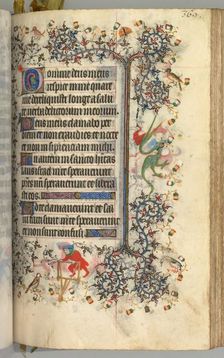 363
o mine deus meus
respice me quare
me dereliquisti longe a salu
te verba delictorum meorum.
Deus meus clamabo per
diem et non exaudies et nocte
et non ad insipienciam michi
Tu autem in sancto habitas
laus israel in te speraverunt
patres nostri speraverunt et libera
sti eos.
Ad te clamaverunt et sal
vi facti sunt in te speraverunt
et non sunt confusi